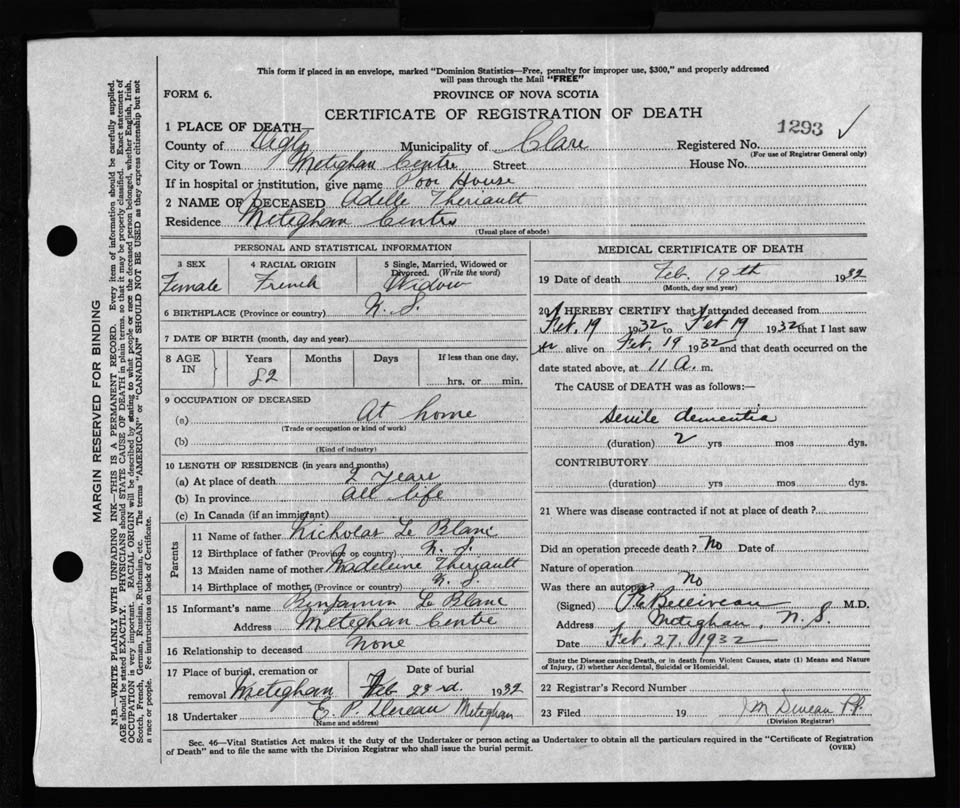 This form if placed in an envelope, marked "Dominion Statistics—Free, penalty for improper use, $300," and properly addressed
will pass through the Mail "FREE"
FORM 6.
PROVINCE OF NOVA SCOTIA
CERTIFICATE OF REGISTRATION OF DEATH
1293 ✓
1 PLACE OF DEATH—
County of Digby Municipality of Clare Registered No.
(For use of Registrar General only)
City or Town Meteghan Centre Street House No.
If in hospital or institution, give name Poor House
2 NAME OF DECEASED Adelle Theriault
Residence Meteghan Centre
(Usual place of abode)
PERSONAL AND STATISTICAL INFORMATION
3 SEX 4 RACIAL ORIGIN 5 Single, Married, Widowed or
Divorced. (Write the word)
Female French Widow
6 BIRTHPLACE (Province or country) N. S.
7 DATE OF BIRTH (month, day and year)
8 AGE IN Years Months Days If less than one day,
82 hrs. or min.
9 OCCUPATION OF DECEASED
(a) At home
(Trade or occupation or kind of work)
(b)
(Kind of industry)
10 LENGTH OF RESIDENCE (in years and months)
(a) At place of death 2 years
(b) In province all life
(c) In Canada (if an immigrant)
Parents
11 Name of father Nicholas Le Blanc
12 Birthplace of father (Province or country) N. S.
13 Maiden name of mother Madeleine Theriault
14 Birthplace of mother (Province or country) N. S.
15 Informant's name Benjamin Le Blanc
Address Meteghan Centre
16 Relationship to deceased None
17 Place of burial, cremation or Date of burial
removal Meteghan Feb 22rd. 1932
18 Undertaker E. P. Meteghan
Name and address)
MEDICAL CERTIFICATE OF DEATH
19 Date of death Feb. 19th 1932
(Month, day and year)
20 I HEREBY CERTIFY that I attended deceased from
Feb. 19 1932 to Feb 19 1932 that I last saw
alive on Feb. 19 1932 and that death occurred on the
date stated above, at 11 a. m.
The CAUSE of DEATH was as follows:—
Senile dementia
(duration) 2 yrs mos dys.
CONTRIBUTORY
(duration) yrs mos dys.
21 Where was disease contracted if not at place of death?
Did an operation precede death? No Date of
Nature of operation
Was there an autopsy? No
(Signed) Belliveau M.D.
Address Meteghan, N. S.
Date Feb. 27. 1932
State the Disease causing Death, or in death from Violent Causes, state (1) Means and Nature
of Injury, (2) whether Accidental, Suicidal or Homicidal.
22 Registrar's Record Number
23 Filed 19
(Division Registrar)
Sec. 46—Vital Statistics Act makes it the duty of the Undertaker or person acting as Undertaker to obtain all the particulars required in the "Certificate of Registration
of Death" and to file the same with the Division Registrar who shall issue the burial permit.
(OVER)
MARGIN RESERVED FOR BINDING
N.B.—WRITE PLAINLY WITH UNFADING INK—THIS IS A PERMANENT RECORD. Every item of information should be carefully supplied.
AGE should be stated EXACTLY. PHYSICIANS should STATE CAUSE OF DEATH in plain terms, so that it may be properly classified. Exact statement of
OCCUPATION is very important. RACIAL ORIGIN will be described by stating to what people or race the deceased person belonged, whether English, Irish,
Scotch, French, German, Russian, Ruthenian, etc. The terms "AMERICAN" or "CANADIAN" SHOULD NOT BE USED as they express citizenship but not
a race or people. See instructions on back of Certificate.